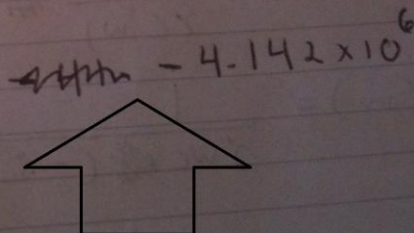 - 4.142 x 10⁶